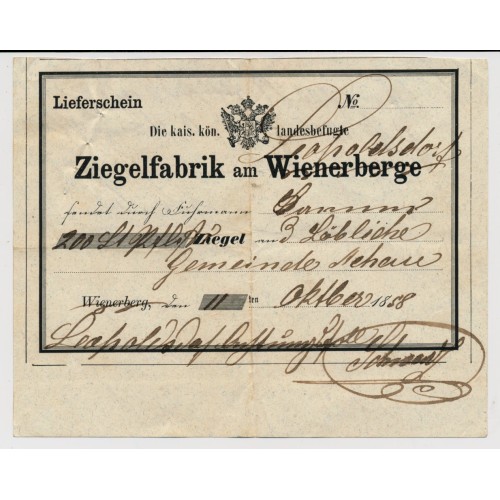 Lieferschein № Leopoldsdorf
Die kais. kön. landesbefugte
Ziegelfabrik am Wienerberge
sendet durch Fuhrmann
200 St Ziegel and Löbliche
Gemeinde
Wienerberg, den 11 ten Oktber 1858
Leopoldsdorf